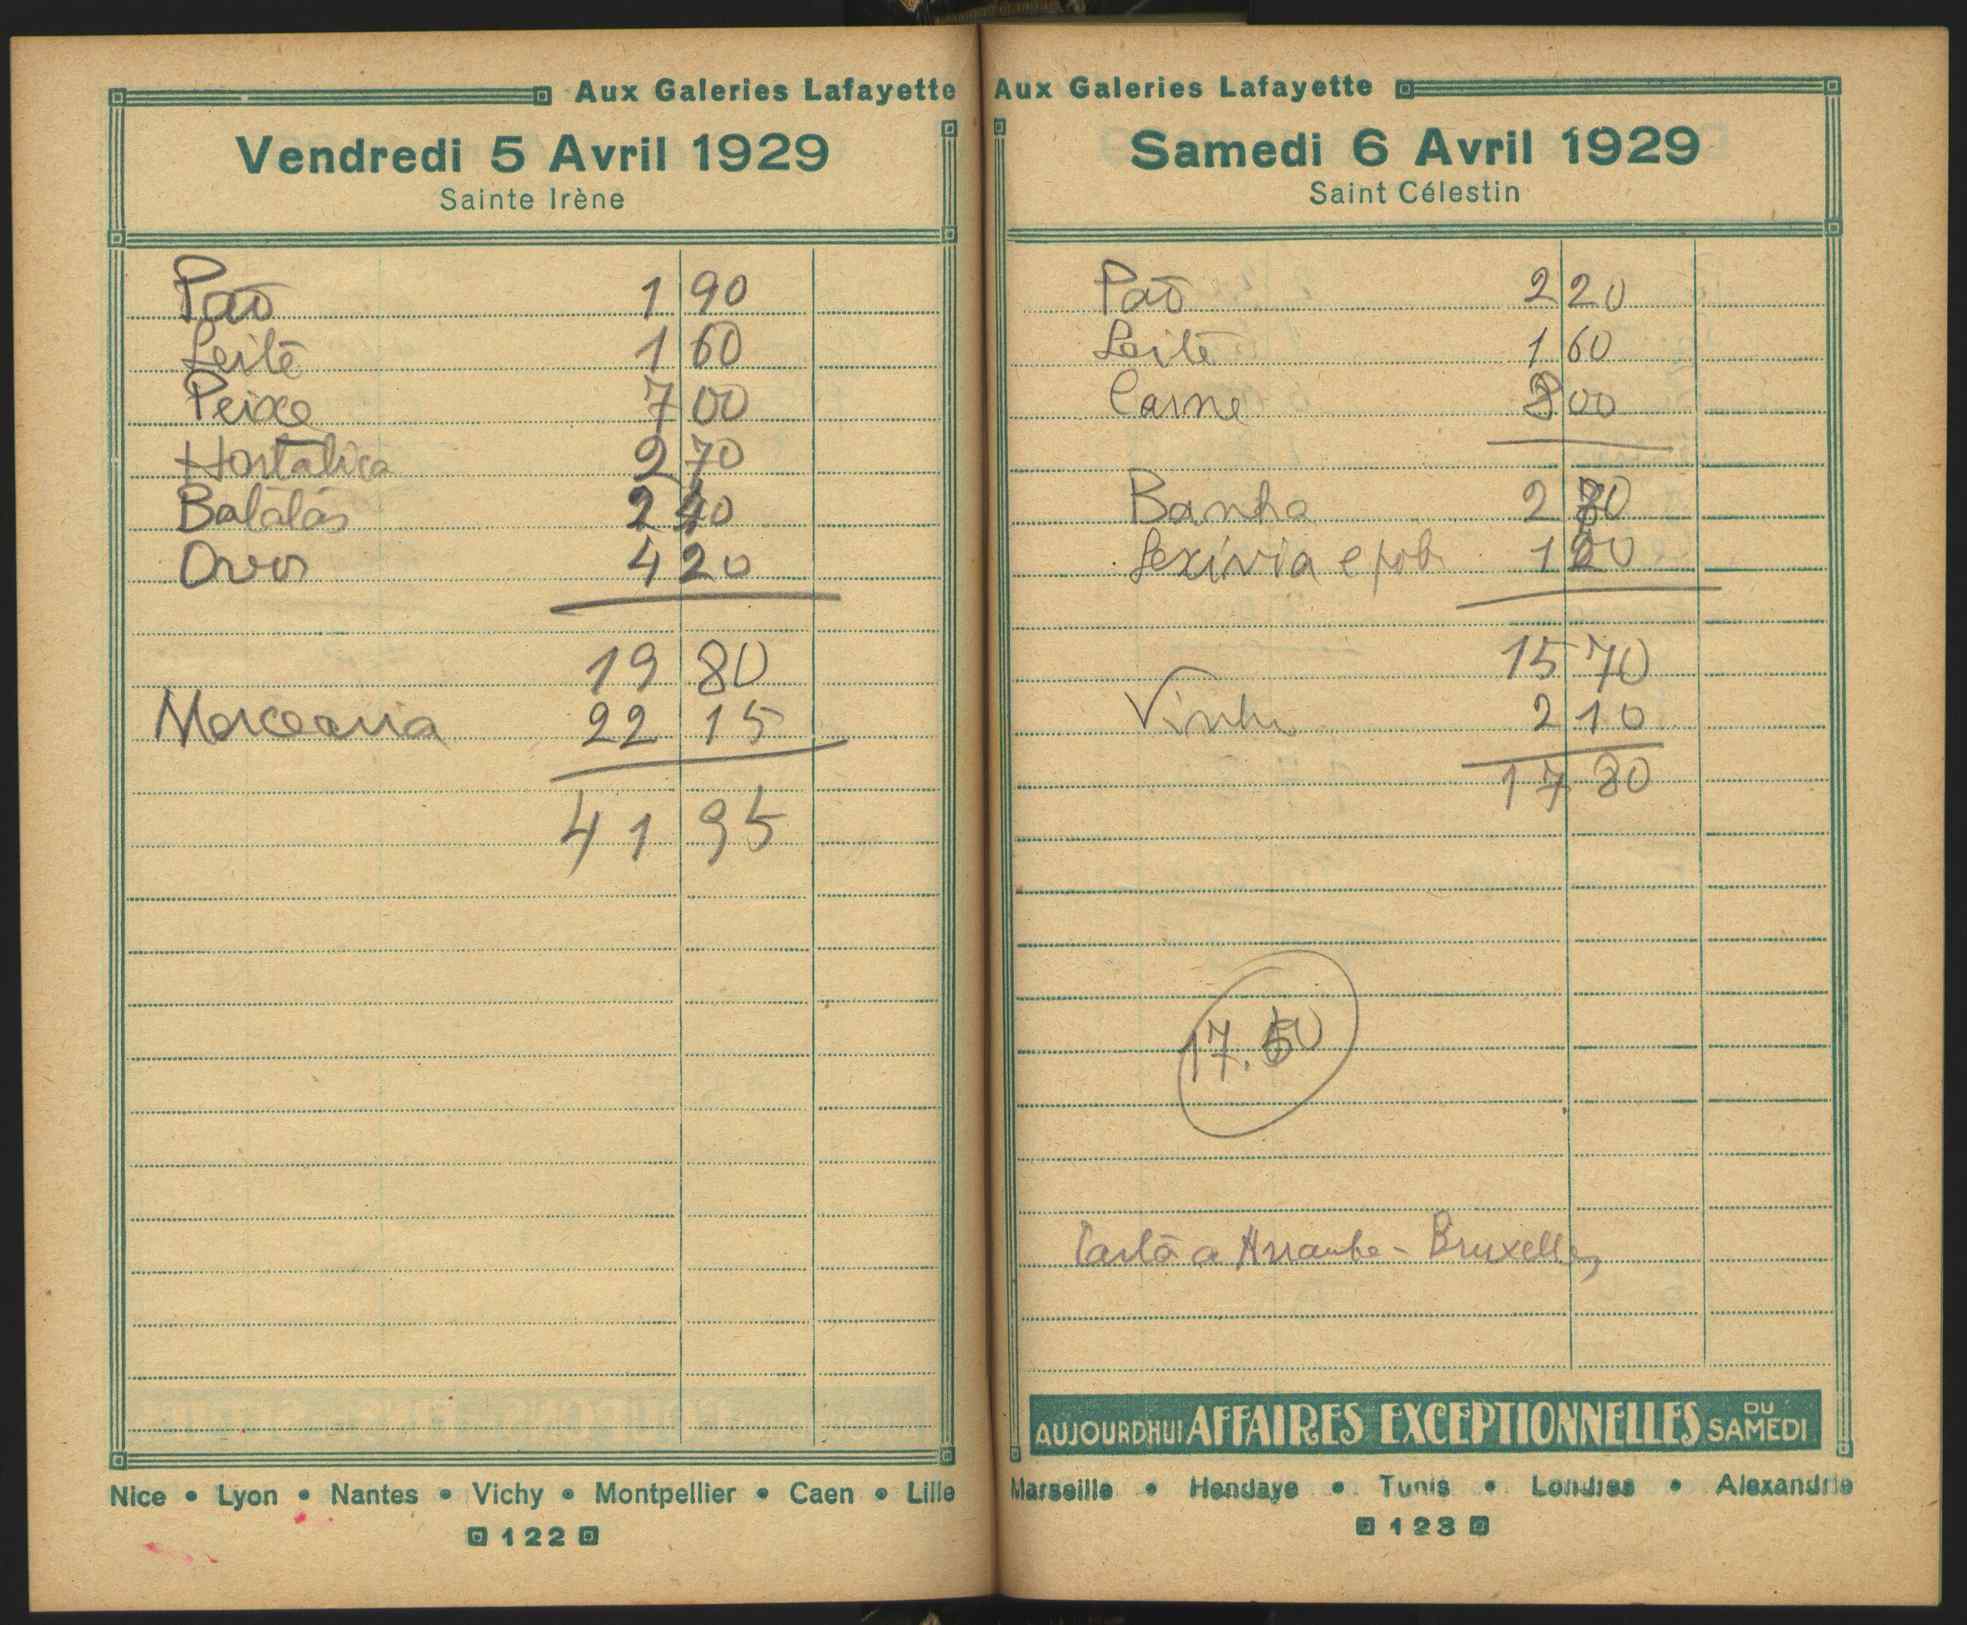 Aux Galeries Lafayette
Vendredi 5 Avril 1929
Sainte Irène
Pão 1 90
Leite 1 60
Peixe 7 00
Hortaliça 2 70
Batatas 2 40
Ovos 4 20
19 80
Mercearia 22 15
41 95
Nice • Lyon • Nantes • Vichy • Montpellier • Caen • Lille
122
Aux Galeries Lafayette
Samedi 6 Avril 1929
Saint Célestin
Pão 2 20
Leite 1 60
Carne 8 00
Banha 2 70
Lexivia e pob. 1 20
15 70
Vinho 2 10
17 80
17.50
Carta a - Bruxelles
AUJOURDHUI AFFAIRES EXCEPTIONNELLES DU SAMEDI
Marseille • Hendaye • Tunis • Londres • Alexandrie
123